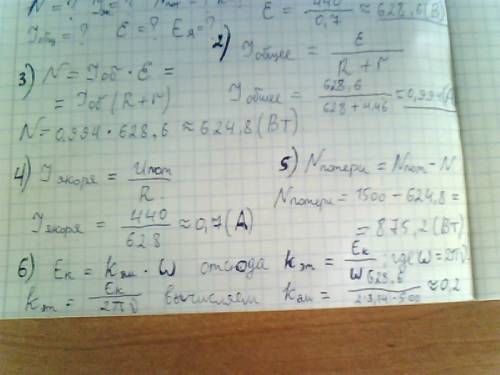 E = 440/0,7 ≈ 628,6(В)
E = ? Eя = ?
2) Jобщее = E/(R + r)
Jобщее = 628,6/(628 + 4,46) = 0,994
3) N = Jоб · E =
= Jоб (R + r)
N = 0,994 · 628,6 ≈ 624,8 (Вт)
4) Jякоря = Uпот/R
Jякоря = 440/628 ≈ 0,7 (А)
5) Nпотери = Nпот - N
Nпотери = 1500 - 624,8 =
= 875,2 (Вт)
6) Eк = kэм · ω отсюда kэм = Eк/ω ; где ω = 2πν
kэм = Eк/2πν вычисляем kэм = 628,6/(2·3,14·500) ≈ 0,2